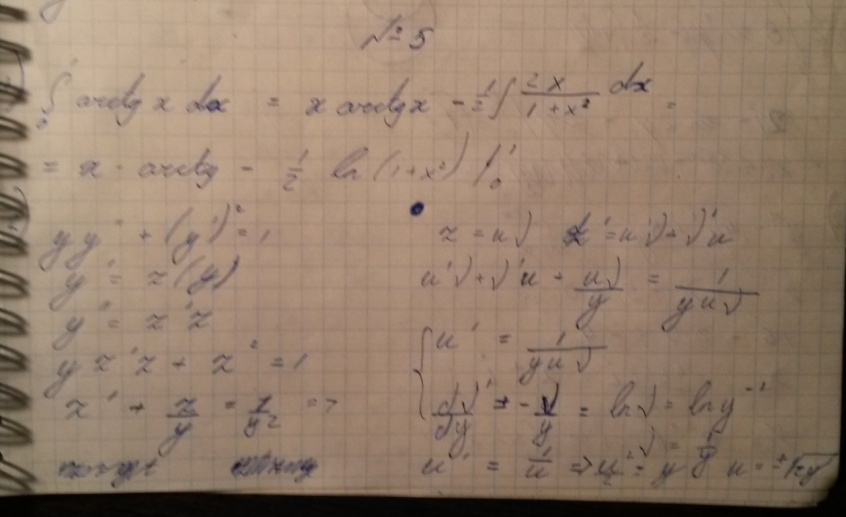 № 5
∫₀¹ arctg x dx = x arctg x - 1/2 ∫ 2x/(1+x²) dx =
= x · arctg - 1/2 ln(1+x²) |₀¹
yy'' + (y')² = 1
y' = z(y)
y'' = z'z
yz'z + z² = 1
z' + z/y = 1/yz =>
z = uν z' = u'ν + ν'u
u'ν + ν'u + uν/y = 1/(yuν)
{ u' = 1/(yuν)
dν/dy = -ν/y = lnν = ln y⁻¹
u' = 1/u => u²/2 = y ν = 1/y u = ±√2y